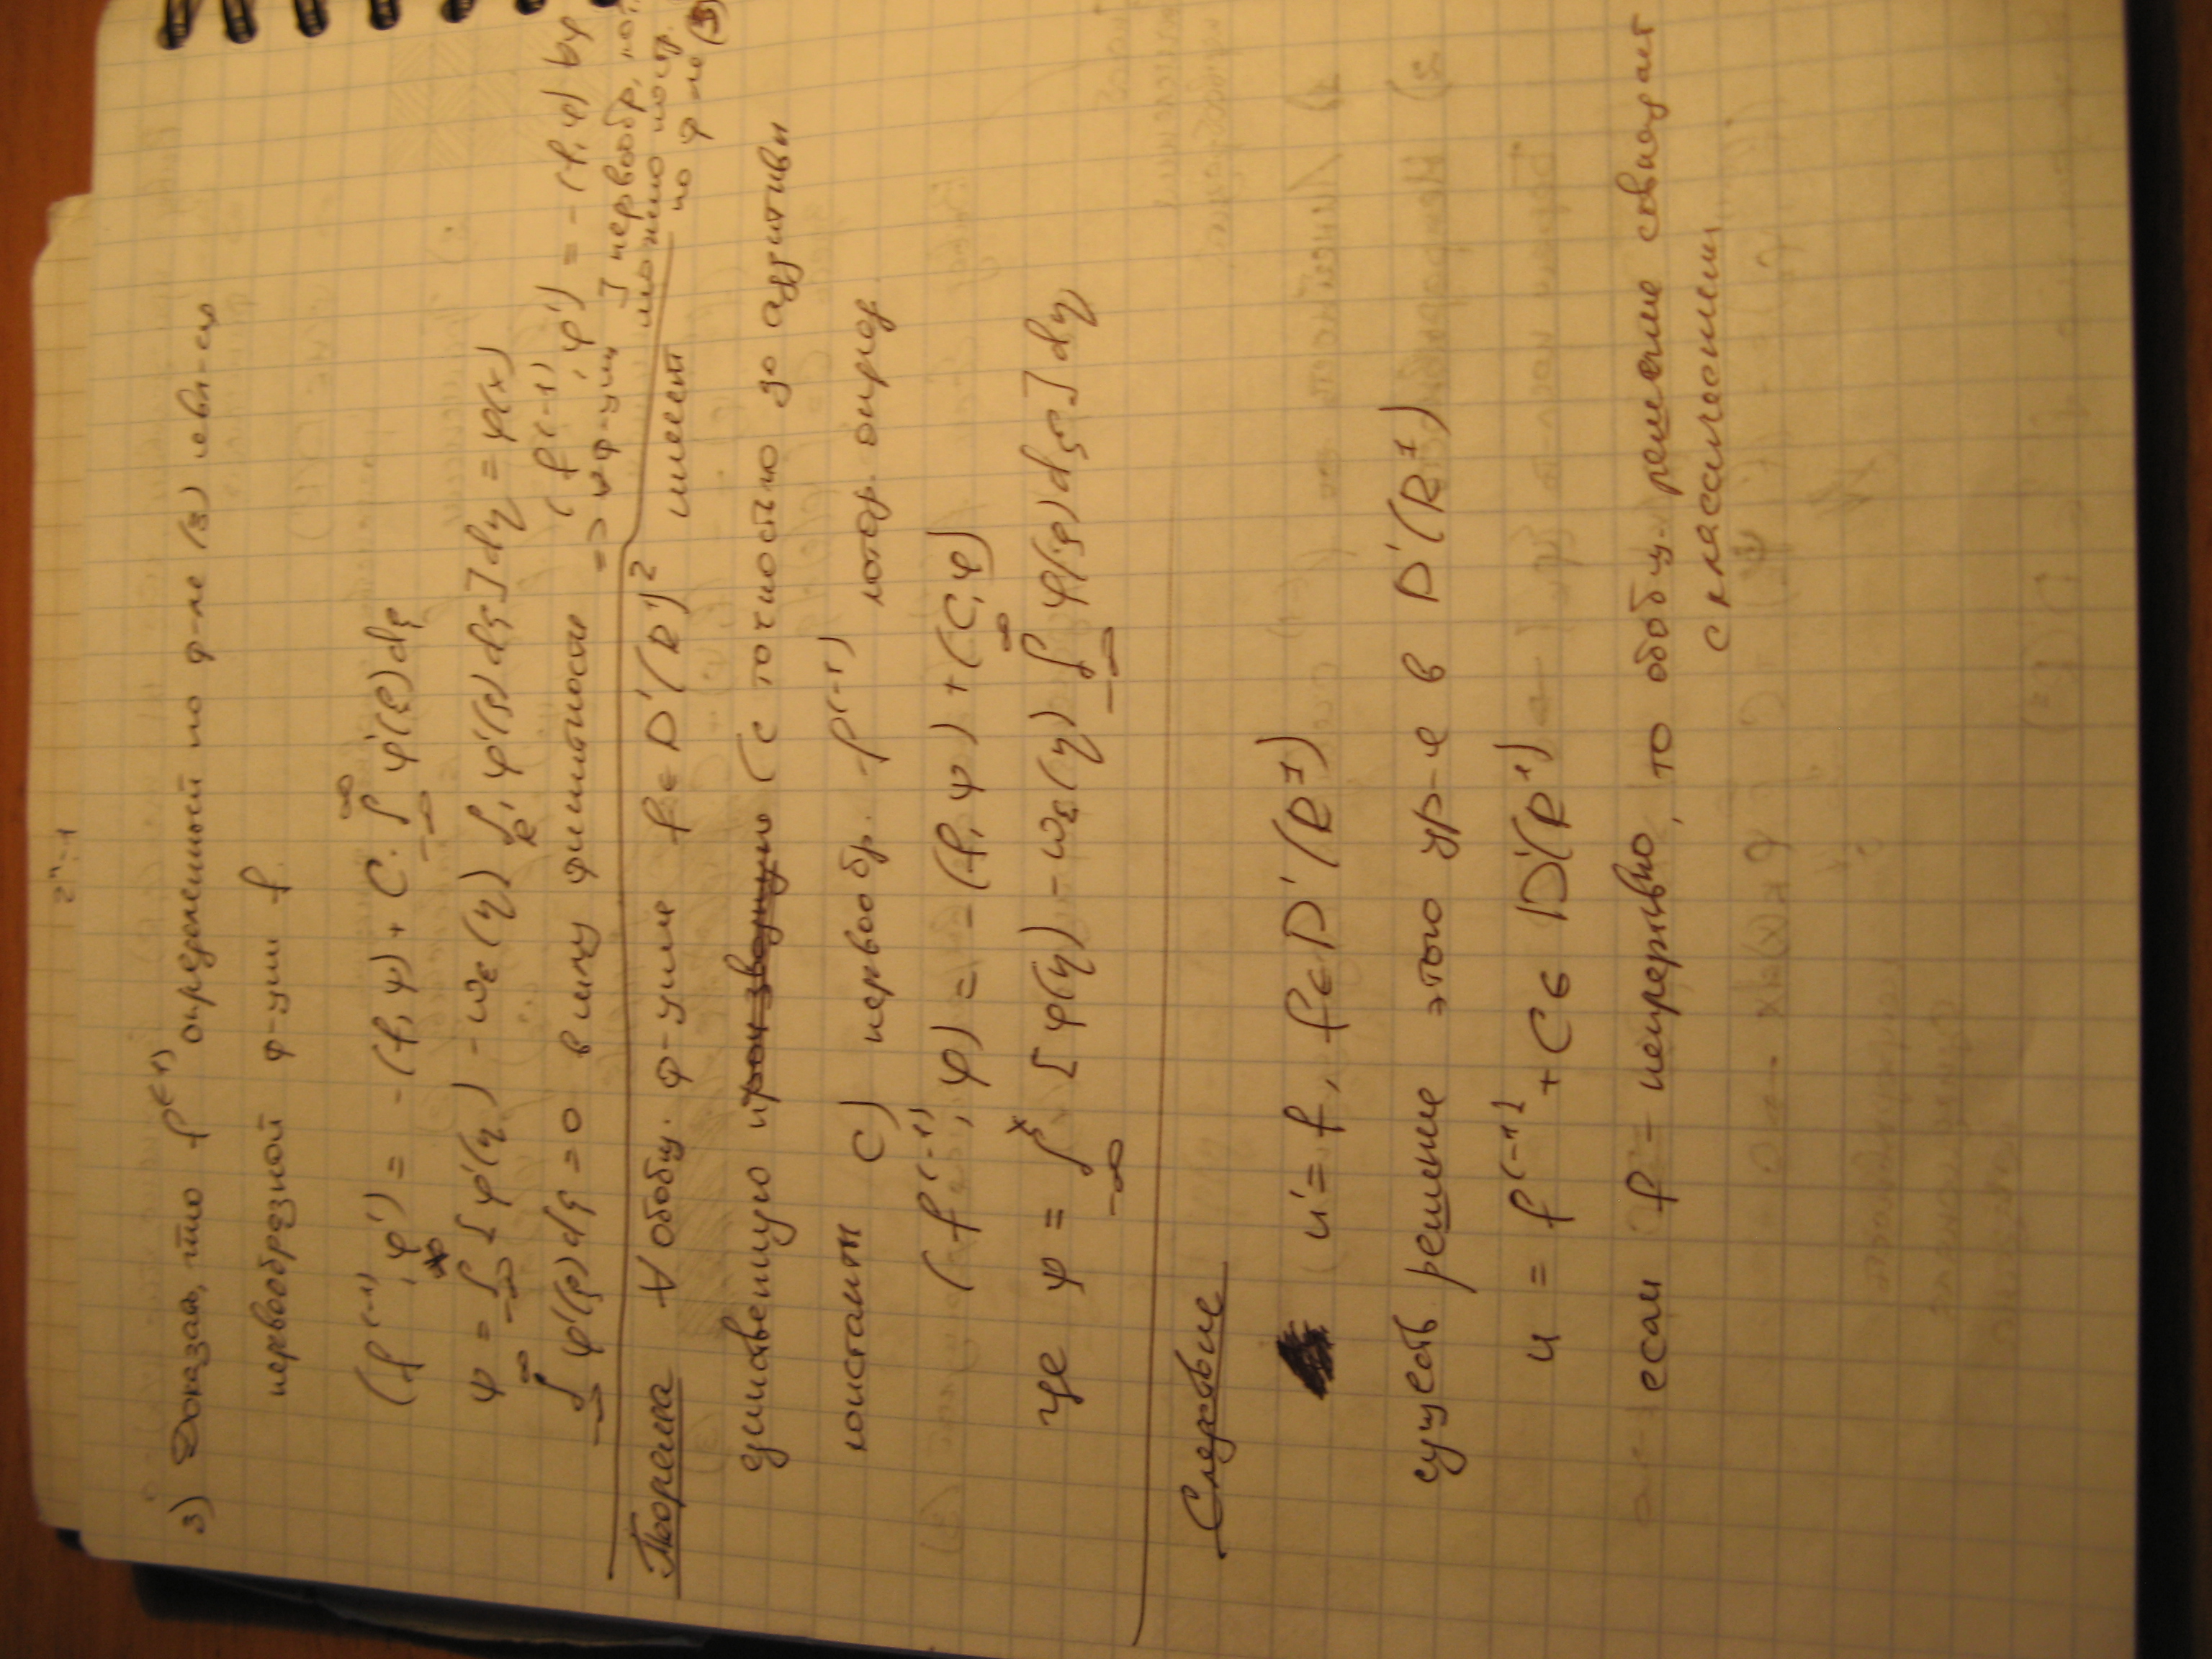 2ⁿ-1
3) Доказать, что f⁽⁻¹⁾ определенный по ф-ле (3) явл-ся
первообразной ф-ции f
(f⁽⁻¹⁾, φ') = -(f, ψ) + C · ∫_{-∞}^{∞} φ'(ξ)dξ
ψ = ∫_{-∞}^{x} [φ'(η) - ω_ε(η) ∫_{R¹} φ'(ξ)dξ] dη = φ(x)
∫_{-∞}^{∞} φ'(ξ)dξ = 0 в силу финитности
(f⁽⁻¹⁾, φ') = -(f, φ)
=> ∀ ф-ции ∃ первообр,
можно постр.
по ф-ле (3)
Теорема ∀ обобщ. ф-ция f ∈ D'(R¹) имеет
единственную (с точностью до аддитивн
констант C) первообр. f⁽⁻¹⁾ котор. опред
(f⁽⁻¹⁾, φ) = -(f, ψ) + (C, φ)
где ψ = ∫_{-∞}^{x} [φ(η) - ω_ε(η) ∫_{-∞}^{∞} φ(ξ)dξ] dη
Следствие
u' = f, f ∈ D'(R¹)
существ. решение этого ур-е в D'(R¹)
u = f⁽⁻¹⁾ + C ∈ D'(R¹)
если f - непрерывно, то обобщ. решение совпадает
с классическим